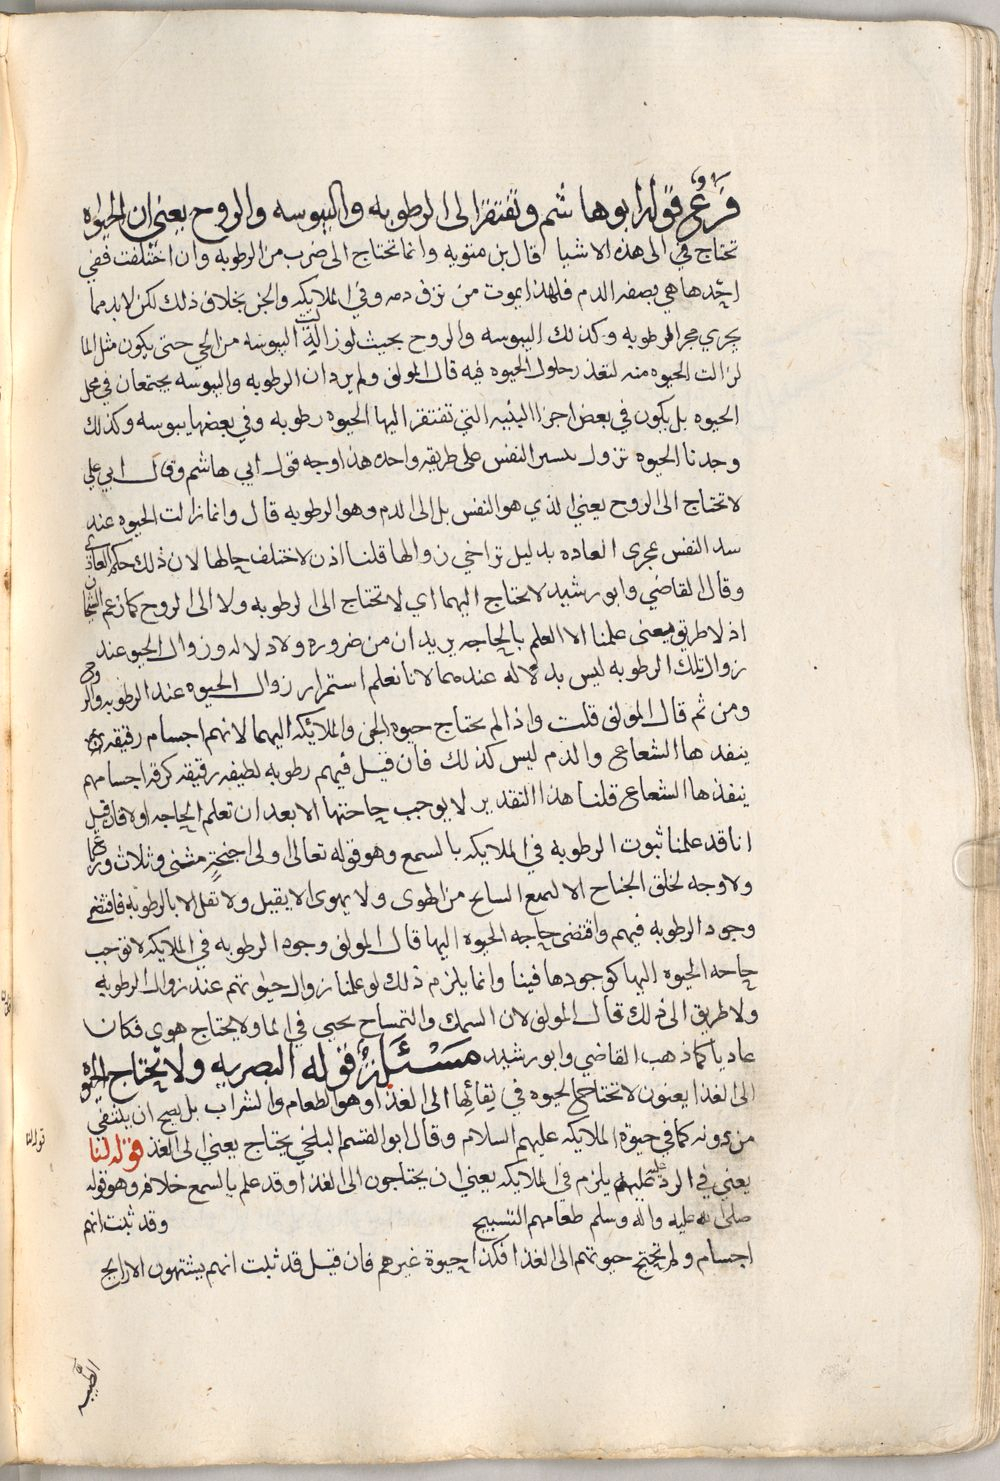 فَرْعٌ قوله ابو هاشم وتفتقر الى الرطوبه واليبوسه والروح يعني ان الحيواه
تحتاج في الى هذه الاشيا قال بن متويه وانما تحتاج الى ضرب من الرطوبه وان اختلفت ففي
احدها هي بصفه الدم فلهذا يموت من نزف دمه وفي الملايكه والجن بخلاف ذلك لكن لابد مما
يجري مجرا الرطوبه وكذلك اليبوسه والروح بحيث لو زالت اليبوسه من الحي حتى يكون مثل الما
لزالت الحيوه منه لتعذر حلول الحيوه فيه قال المولف ولم يرد ان الرطوبه واليبوسه يجتمعان في محل
الحيوه بل يكون في بعض اجزا البنيه التي تفتقر اليها الحيوه رطوبه وفي بعضها يبوسه وكذلك
وجدنا الحيوه تزول النفس على طريقه واحده هذا وجه قول ابي هاشم وقال ابي علي
لا تحتاج الى الروح يعني الذي هو النفس بل الى الدم وهو الرطوبه قال وانما زالت الحيوه عند
سد النفس بمجرى العاده بدليل تراخي زوالها قلنا اذن لاختلف حالها لان ذلك حكم العادي
وقال القاضي وابو رشيد لا تحتاج اليهما اي لا تحتاج الى الرطوبه ولا الى الروح كما زعم الشيخان
اذ لا طريق يعني علمنا الا العلم بالحاجه يريد ان من ضروره ولا دلاله وزوال الحيو عند
زوال تلك الرطوبه ليس بدلاله عندهما لانا نعلم استمرار زوال الحيوه عند الرطوبه والروح
ومن ثم قال المولف قلت واذا لم يحتاج حيوه الجن والملائكه اليهما لانهم اجسام رقيقه
ينفذها الشعاع والدم ليس كذلك فان قيل فيهم رطوبه لطيفه رقيقه كرقه اجسامهم
ينفذها الشعاع قلنا هذا التقدير لا يوجب حاجتها الا بعد ان تعلم الحاجه اولا فان قيل
انا قد علمنا ثبوت الرطوبه في الملايكه بالسمع وهو قوله تعالى اولى اجنحةٍ مثنى وثلاث ورباع
ولا وجه لخلق الجناح الا من الهوى ولا يهوى الا ثقيل ولا ثقل الا بالرطوبه فاقتضى
وجود الرطوبه فيهم واقتضى حاجه الحيوه اليها قال المولف وجود الرطوبه في الملايكه لا توجب
حاجه الحيوه اليها كوجودها فينا وانما يلزم ذلك لو علمنا زوال حيوتهم عند زوال الرطوبه
ولا طريق الى ذلك قال المولف لان السمك والتمساح يحيى في الما ولا يحتاج هوى فكان
عاديا كما ذهب القاضي وابو رشيد مَسْئَلَةٌ قوله البصريه ولا تحتاج الحيوه
الى الغذا يعنون لا تحتاج الحيوه في بقائها الى الغذا وهو الطعام والشراب بل يصح ان ينتفي
من دونه كما في حيوة الملايكه عليهم السلام وقال ابو القسم البلخي يحتاج يعني الى الغذ قوله لنا
يعني في الرد عليهم يلزم في الملايكه يعني ان يحتاجون الى الغذا وقد علم بالسمع خلافه وهو قوله
صلى الله عليه واله وسلم طعامهم التسبيح وقد ثبت انهم
اجسام ولم تحتج حيوتهم الى الغذا فكذا حيوة غيرهم فان قيل قد ثبت انهم يشتهون الارايح
الطيبه
قوله لنا